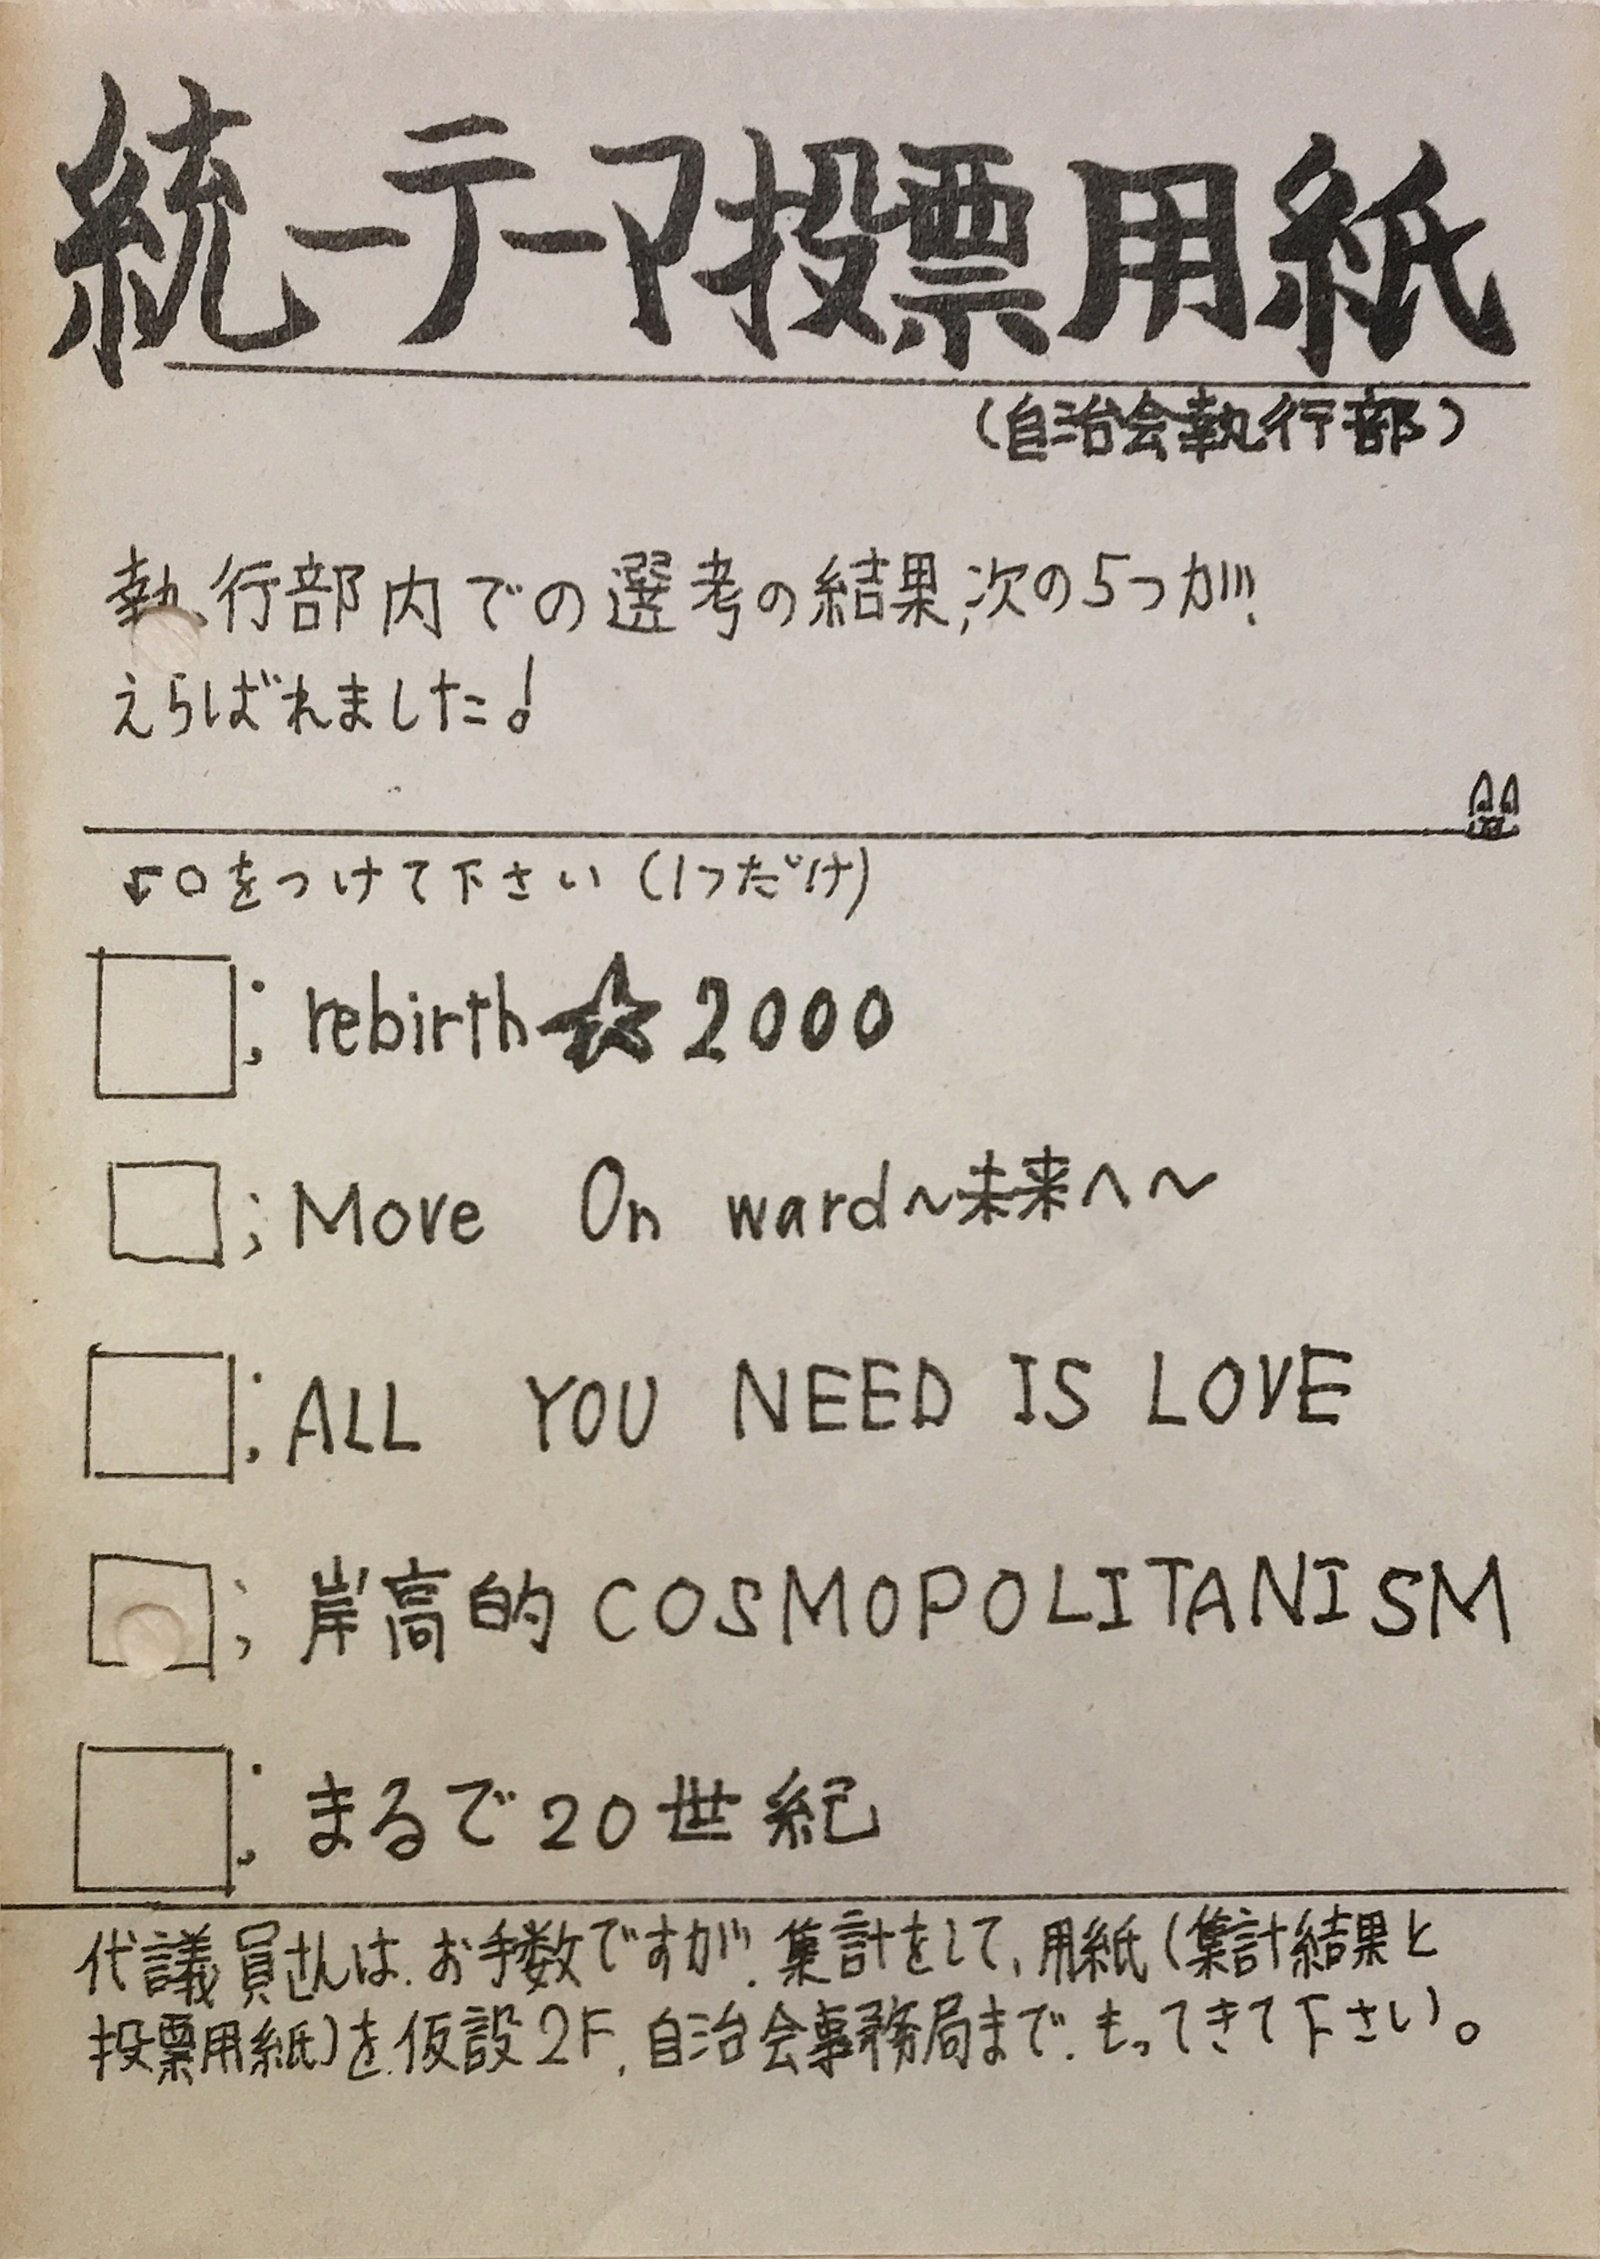 統一テーマ投票用紙
(自治会執行部)
執行部内での選考の結果,次の5つが、
えらばれました!
↓○をつけて下さい(1つだけ)
; rebirth☆2000
; Move On ward~未来へ~
; ALL YOU NEED IS LOVE
; 岸高的COSMOPOLITANISM
; まるで20世紀
代議員さんは、お手数ですが、集計をして、用紙(集計結果と
投票用紙)を、仮設2F,自治会事務局まで、もってきて下さい。